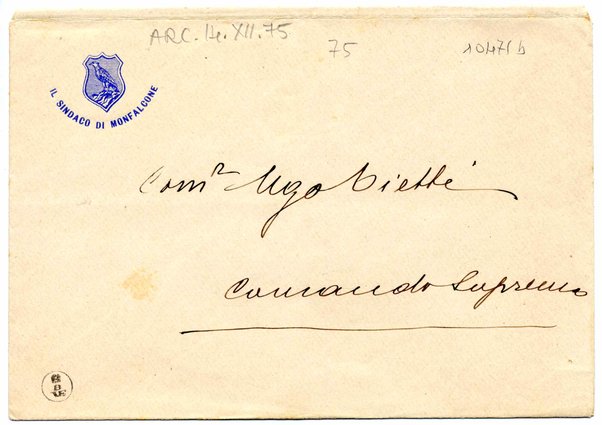 ARC. He. XII. 75
75
10471 b
IL SINDACO DI MONFALCONE
Comr Ugo Oietti
Comando Supremo